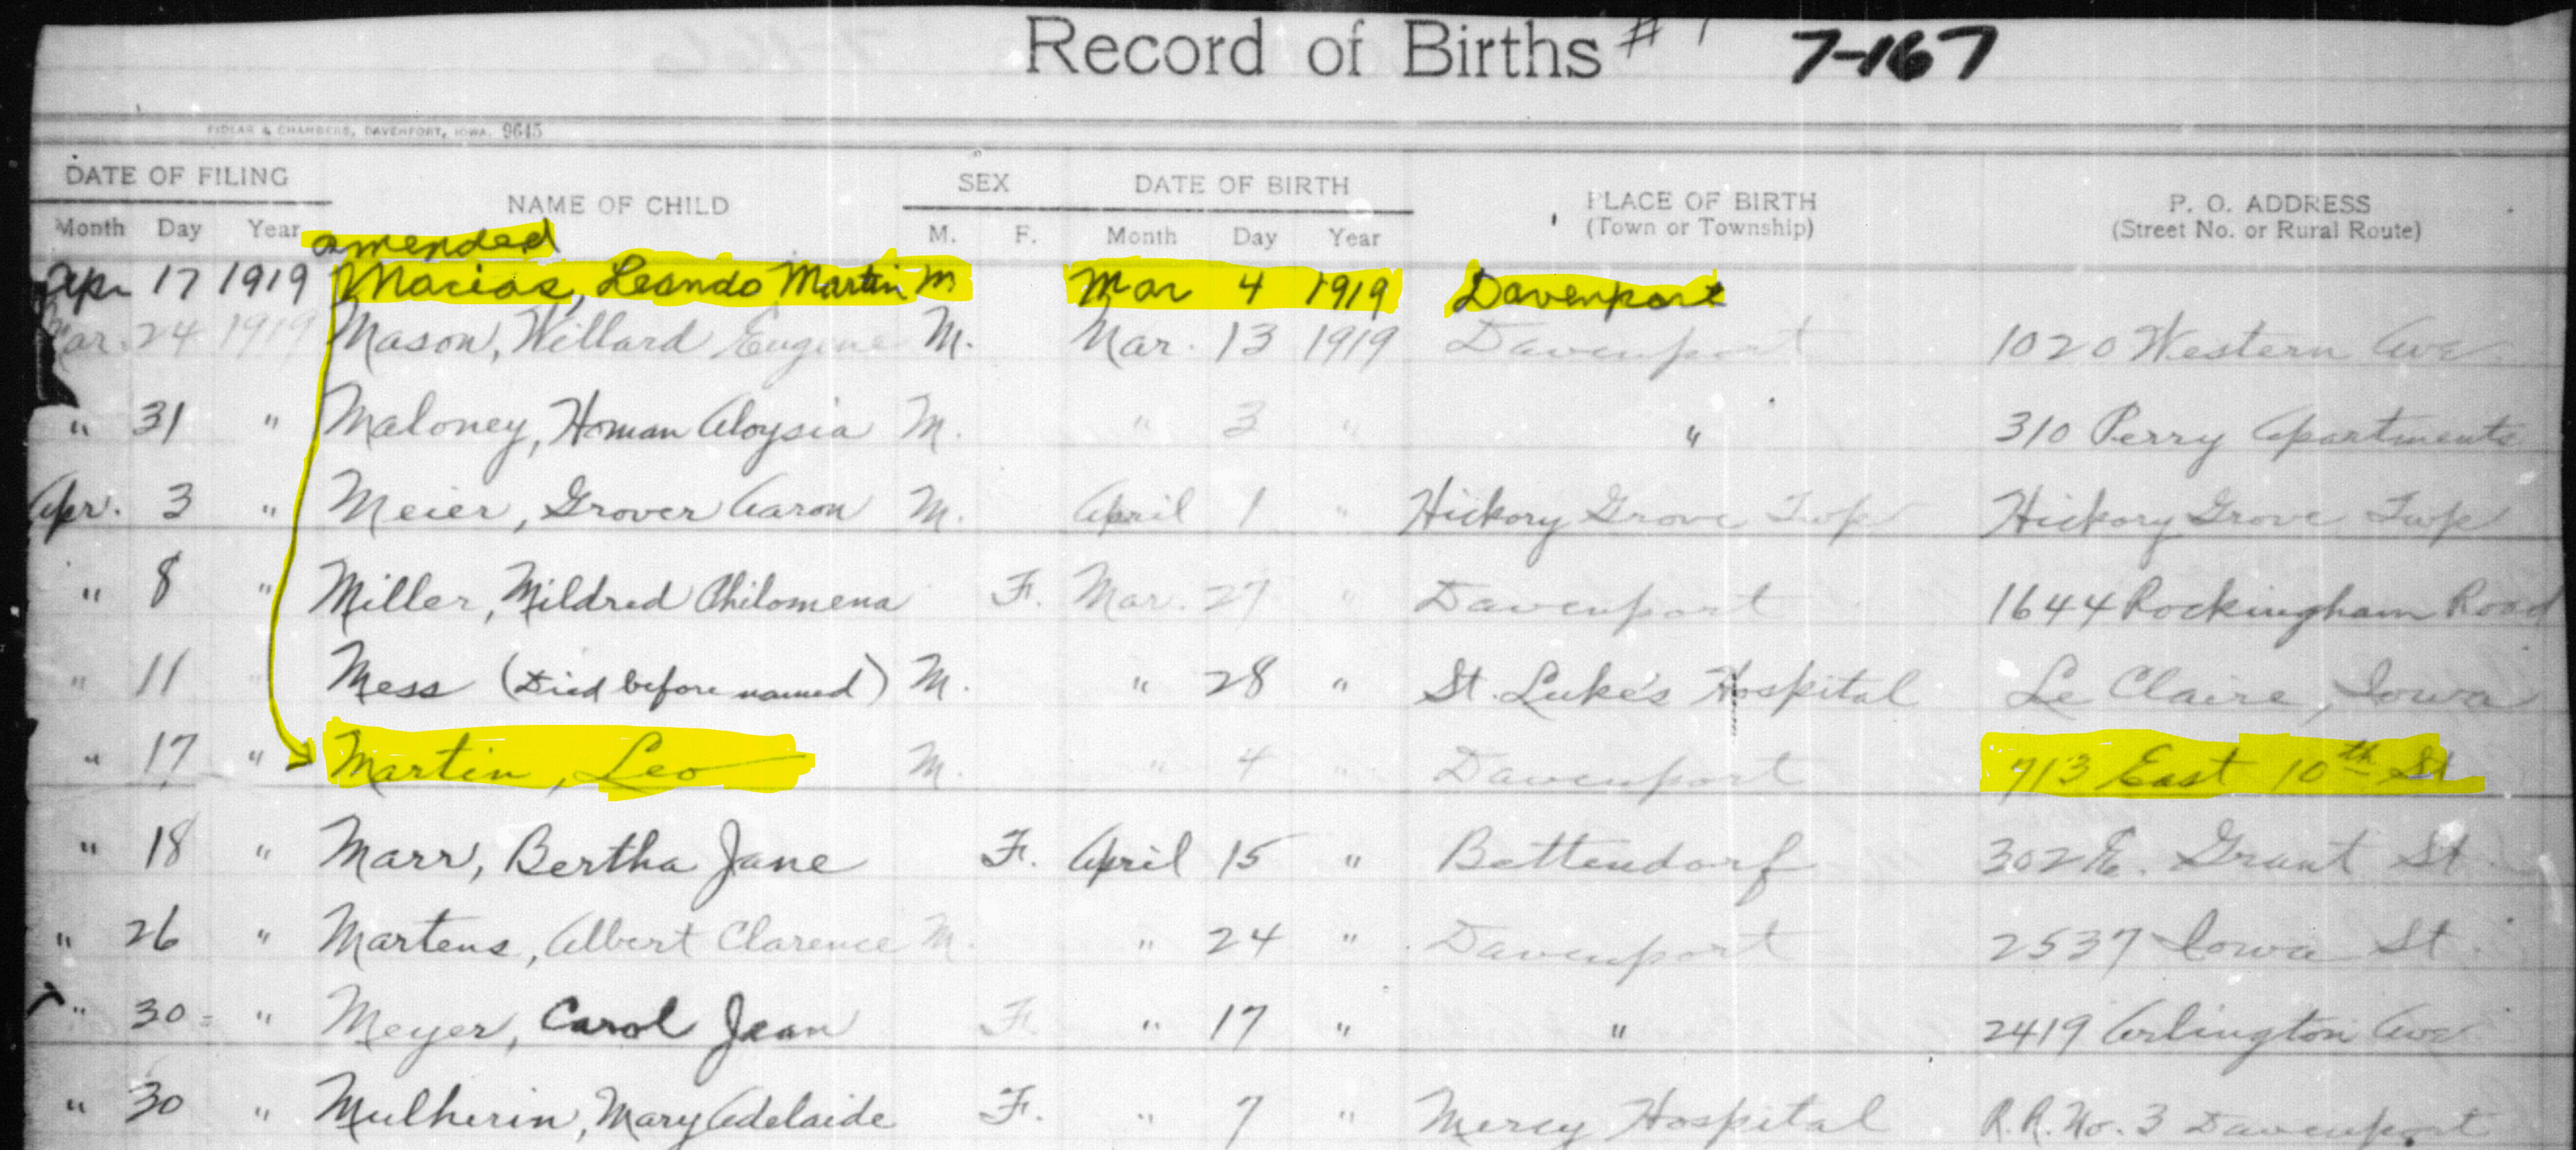 Record of Births # 1 7-167
FIDLAR & CHAMBERS, DAVENPORT, IOWA. 9645
DATE OF FILING NAME OF CHILD SEX DATE OF BIRTH PLACE OF BIRTH P. O. ADDRESS
Month Day Year M. F. Month Day Year (Town or Township) (Street No. or Rural Route)
amended
Apr 17 1919 Macias, Leando Martin M Mar 4 1919 Davenport
Mar. 24 1919 Mason, Willard Eugene M. Mar. 13 1919 Davenport 1020 Western Ave.
" 31 " Maloney, Homan Aloysia M. " 3 " " 310 Perry Apartments
Apr. 3 " Meier, Grover Aaron M. April 1 " Hickory Grove Twp Hickory Grove Twp
" 8 " Miller, Mildred Philomena F. Mar. 27 " Davenport 1644 Rockingham Road
" 11 " Mess (Died before named) M. " 28 " St. Luke's Hospital Le Claire, Iowa
" 17 " Martin, Leo M. " 4 " Davenport 713 East 10th St
" 18 " Marr, Bertha Jane F. April 15 " Bettendorf 302 E. Grant St.
" 26 " Martens, Albert Clarence M. " 24 " Davenport 2537 Iowa St.
" 30 " Meyer, Carol Jean F. " 17 " " 2419 Arlington Ave
" 30 " Mulherin, Mary Adelaide F. " 7 " Mercy Hospital R.R. No. 3 Davenport